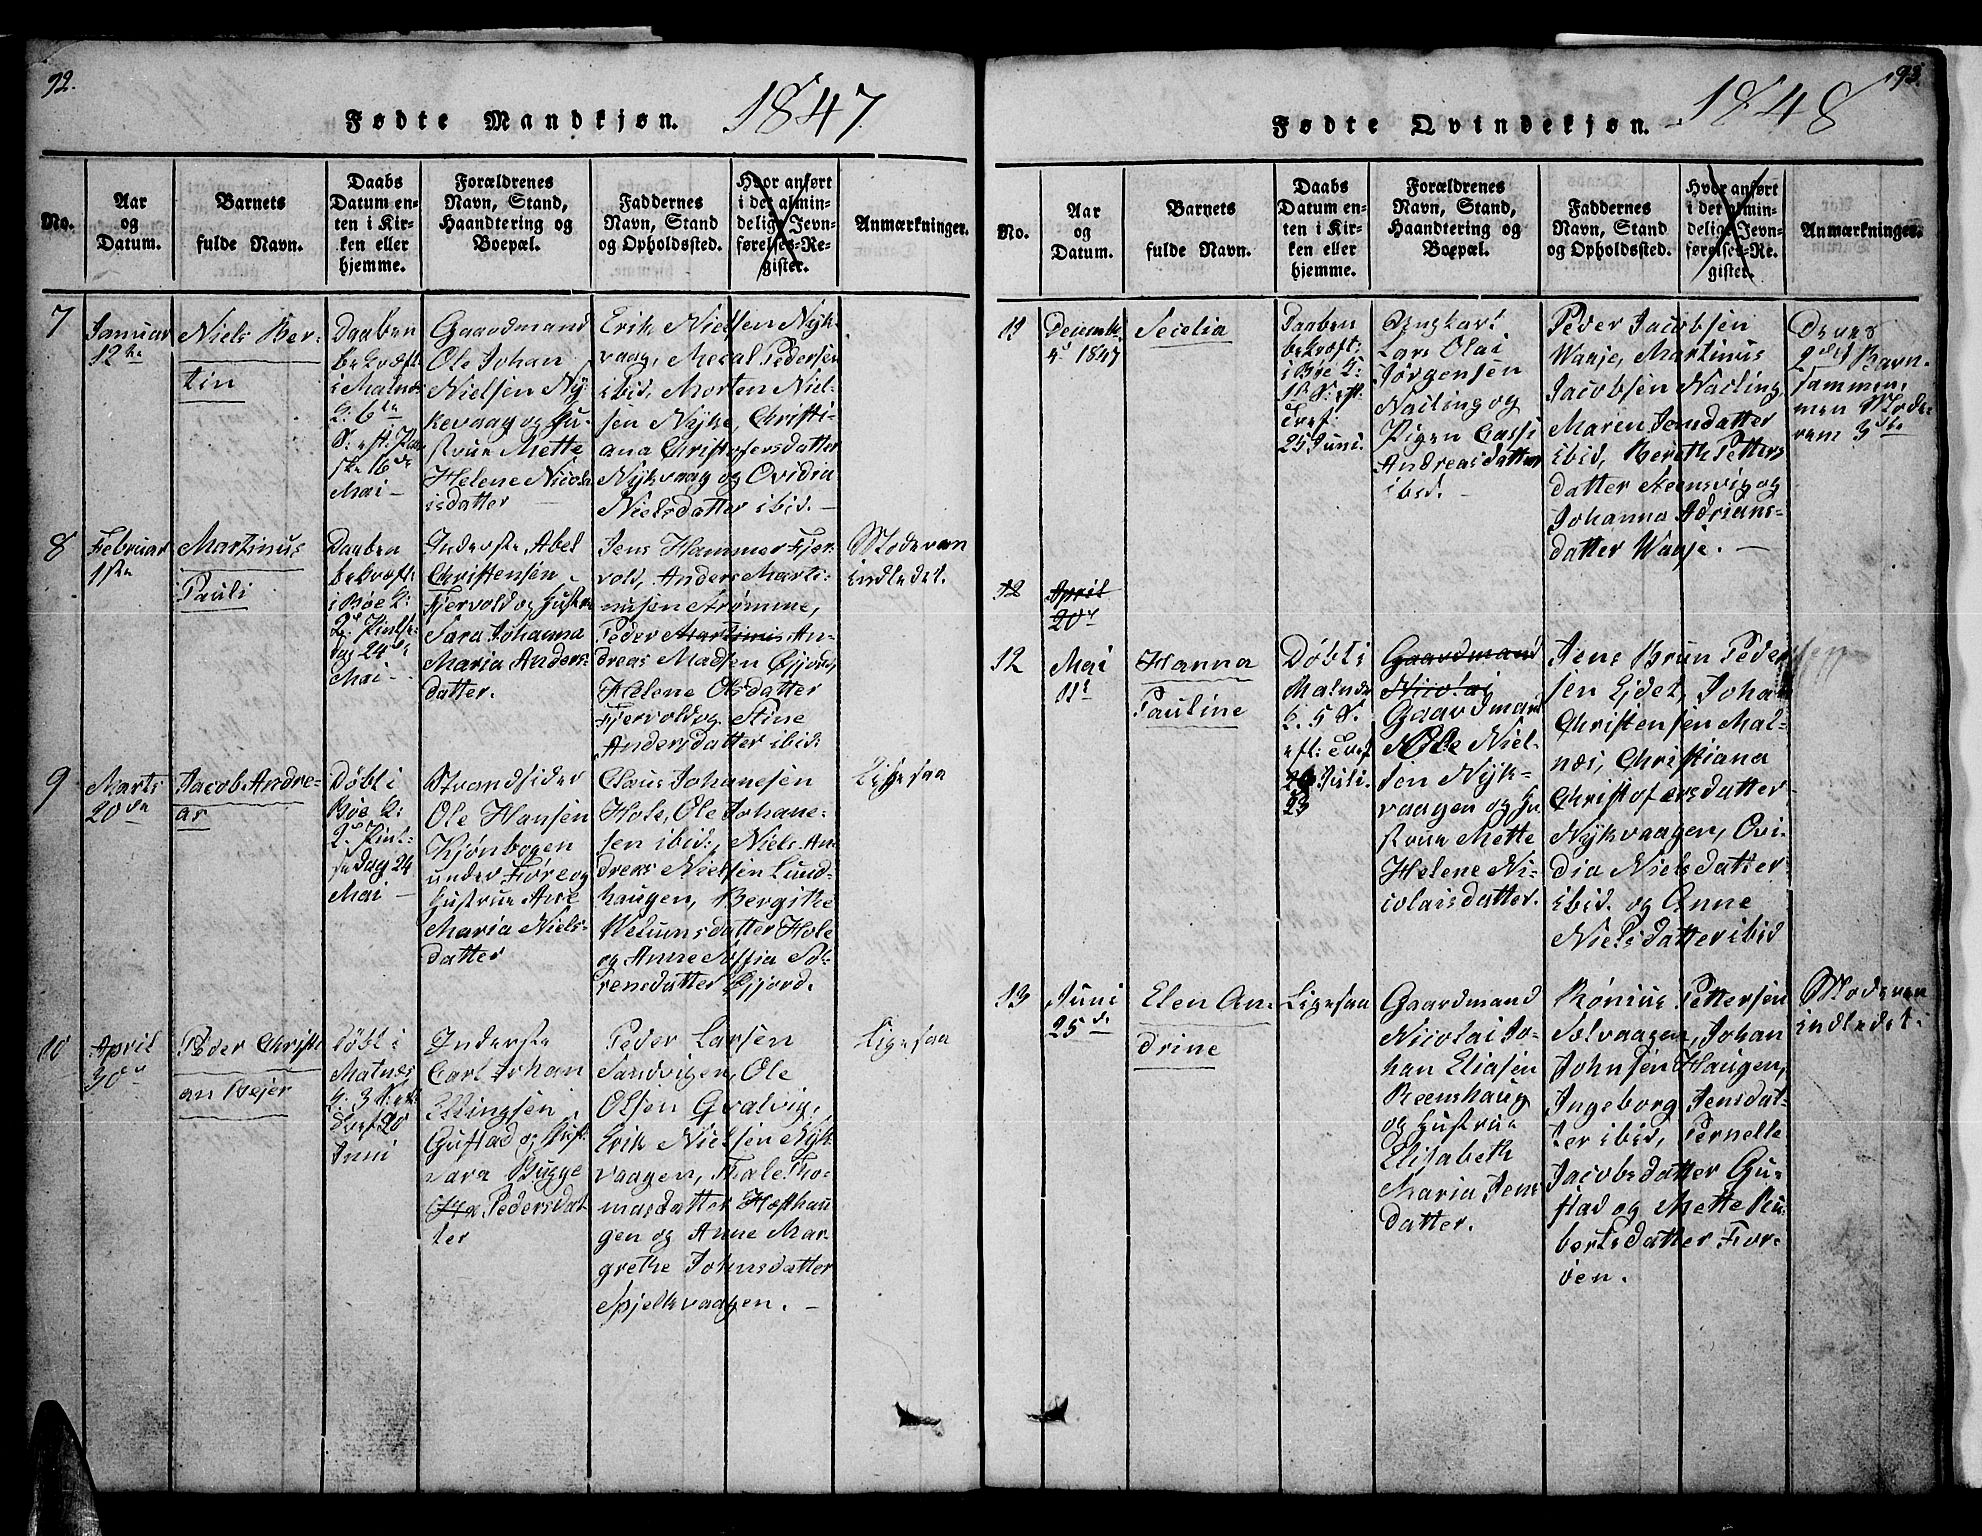 92.
Fødte Mandkjøn. 1847
No.
Aar
og
Datum.
Barnets
fulde Navn.
Daabs
Datum en-
ten i Kir-
ken eller
hjemme.
Forældrenes
Navn, Stand,
Haandtering og
Boepæl.
Faddernes
Navn, Stand
og Opholdssted.
Hvor anført
i det almin-
delige Jevn-
førelses-Re-
gister.
Anmærkninger.
7
Januar
12te
Niels Ber-
tin
Daaben
bekræft:
i Malnes
6te
S: eft: Paa-
ske 16de
Mai —
Gaardmand
Ole Johan
Nielsen Ny-
kevaag og Hu-
strue Mette
Helene Nicola-
isdatter
Erik Nielsen Nyk-
vaag, Pedersen
ibid, Morten Niel-
sen Nyke, Christi-
ana Christofersdatter
Nykvaag og Ovidia
Nielsdatter ibid. —
8
Februar
1ste
Martinus
Pauli
Daaben
bekræft:
i Bøe K:
2d Pintse-
dag 24de
Mai —
Inderste Abel
Christensen
Fjervold og Hustru
Sara Johanna
Maria Anders-
datter.
Jens Hammer Fjer-
vold, Anders Marti-
nusen Strømme,
Peder Martinus An-
dreas Madsen Gjjord,
Helene Olsdatter
Fjervold og Stine
Andersdatter ibid:
Moderen
indledet.
9
Marts
20de
Jacob Andre-
as
Døbt i
Bøe K:
2d Pint-
sedag 24
Mai —
Strandsider
Ole Hansen
Kjønbogen
under Føre og
Hustrue Ane
Maria Niels-
datter
Claus Johansen
Hole, Ole Johane-
sen ibid:, Niels An-
dreas Nielsen Lund-
haugen, Bergithe
Velumsdatter Hole
og Anne Sofia Sø-
rensdatter Gjjord.
Ligesaa
10
April
30te
Peder Christi-
an Bejer
Døbt i
Malnes
K: 3 S: eft:
Tref: 20
Juni
Inderste
Carl Johan
Ellingsen
Gustad og Hust:
Sara Bugge
Pedersdat-
ter
Peder Larsen
Sandvigen, Ole
Olsen Qvalvig,
Erik Nielsen Nyk-
vaagen, Male Tho-
masdatter Hofthau-
gen og Anne Mar-
grethe Johnsdatter
Spjelkvaagen. —
Ligesaa
93.
Fødte Qvindekjøn. 1848
No.
Aar
og
Datum.
Barnets
fulde Navn.
Daabs
Datum en-
ten i Kir-
ken eller
hjemme.
Forældrenes
Navn, Stand,
Haandtering og
Boepæl.
Faddernes
Navn, Stand
og Opholdssted.
Hvor anført
i det almin-
delige Jevn-
førelses-Re-
gister.
Anmærkninger.
11
Decembr
4d 1847
Secelia
Daaben
bekræft:
i Bøe K:
1ste S: eft:
Tref:
25 Juni.
Ungkarl
Lars Olai
Jørgensen
Nailing og
Pigen Cassi
Andreasdatter
ibid. —
Peder Jacobsen
Waaje, Martinus
Jacobsen Nailing,
Maren Jensdatter
ibid, Berith Petters-
datter Steensvig og
Johanna Adrians-
datter Waaje. —
Deres
2det Barn
sammen,
men Mode-
rens 3die
12
April
20d
12
Mai
11t
Hanna
Pauline
Døbt i
Malnes
K. 5 S.
eft: Tref
Juli.
23
Gaardmand
Nicolai
Gaardmand
Ole Niel-
sen Nyk-
vaagen og Hu-
strue Mette
Helene Ni-
colaisdatter.
Jens Brun Peder-
sen Eidet, Johan
Christensen Mal-
næs, Christiana
Christofersdatter
Nykvaagen, Ovi-
dia Nielsdatter
ibid. og Anne
Nielsdatter ibid
13
Juni
25de
Elen An-
drine
Ligesaa
Gaardmand
Nicolai Jo-
han Eliasen
Reenshaug
og Hustrue
Elisabeth
Maria Jens-
datter.
Rønius Pettersen
Solvaagen, Johan
Johnsen Haugen,
Ingeborg Jensdat-
ter ibid, Pernelle
Jacobsdatter Gu-
stad og Mette Ru-
bertsdatter Fore-
øen.
Moderen
indledet.